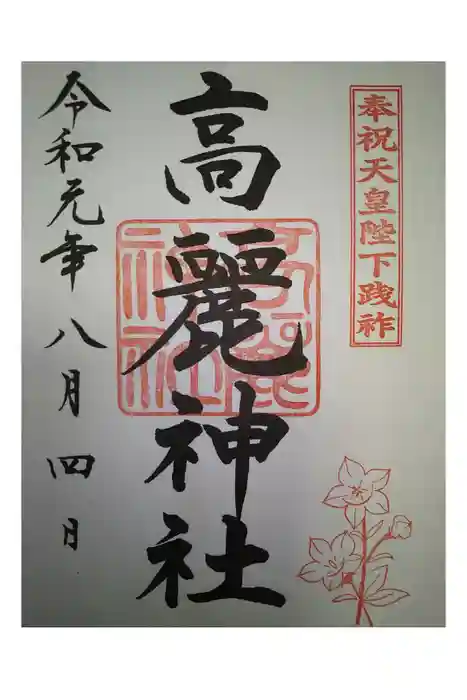 奉祝天皇陛下践祚
高麗神社
令和元年八月四日
高麗神社